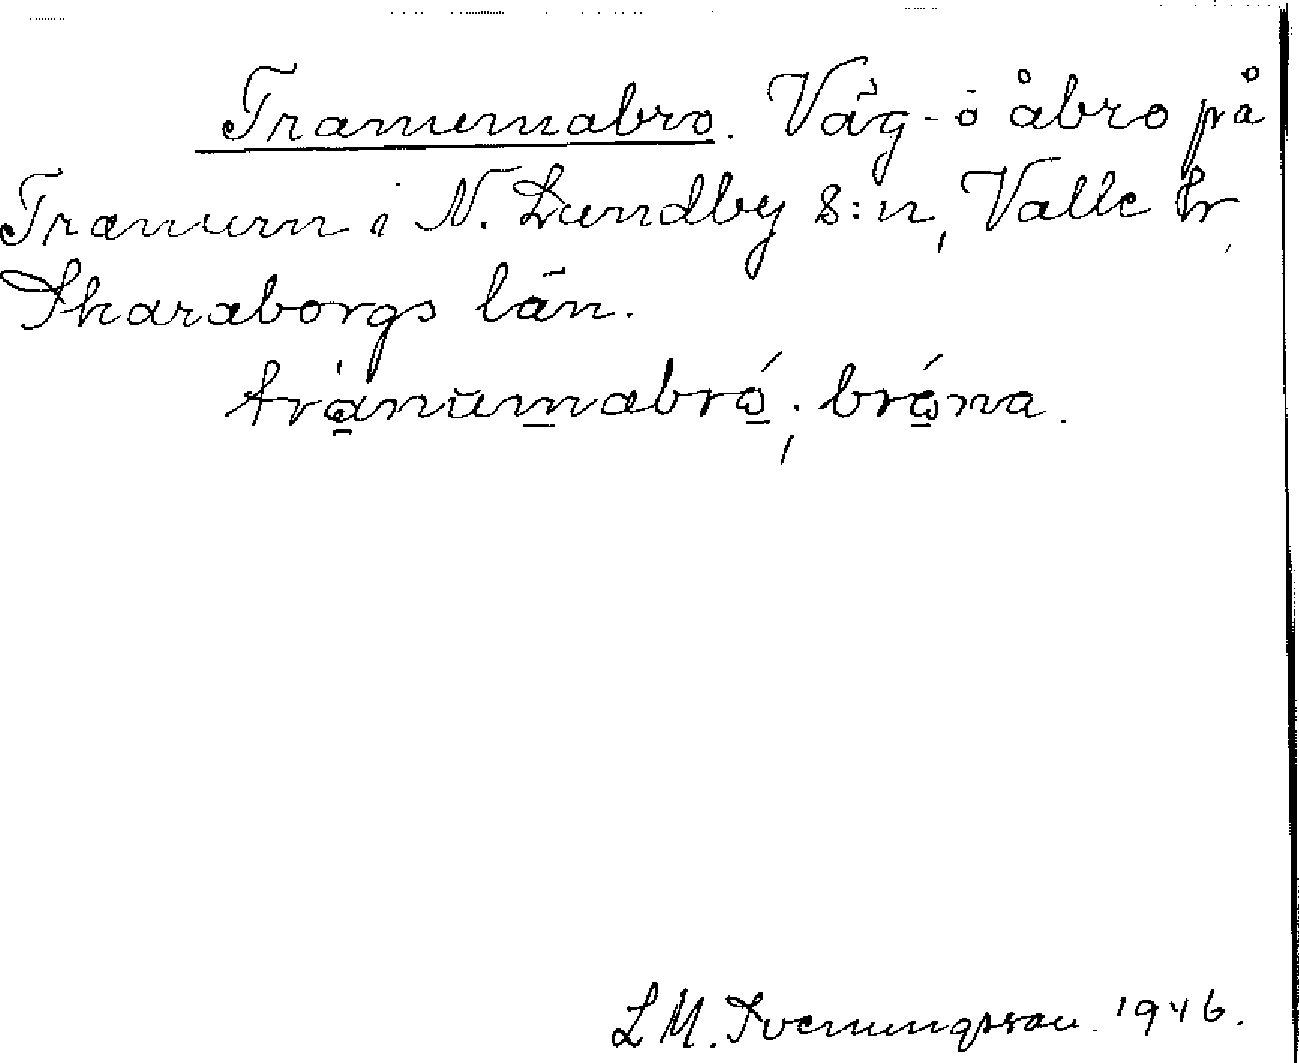 Tranumabro. Väg- o åbro på
Tranum i N. Lundby s:n, Valle hr,
Skaraborgs län.
tránumabró, bróna.
L M. Svenungsson. 1946.